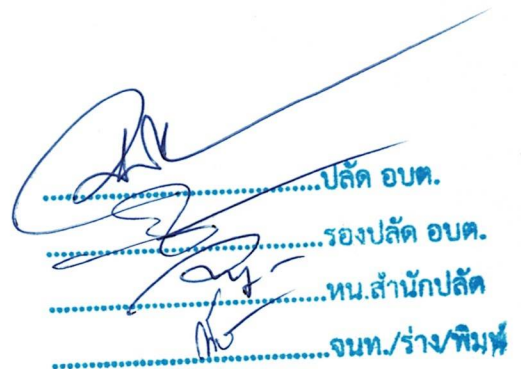 ....................ปลัด อบต.
....................รองปลัด อบต.
....................หน.สำนักปลัด
....................จนท./ร่าง/พิมพ์